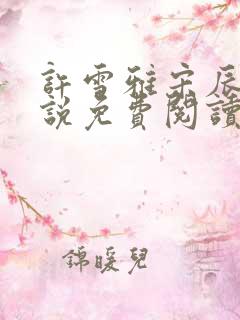 許雪雅宋辰
說免費閱讀
錦暖兒